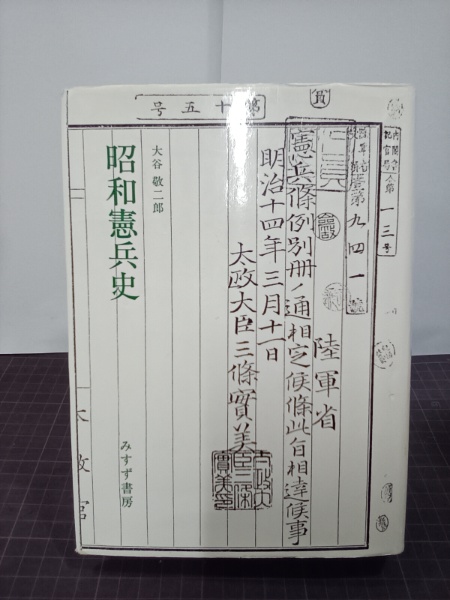 昭和憲兵史
大谷敬二郎
みすず書房
第十五号
陸軍省
憲兵條例別冊ノ通相定候條此旨相達候事
明治十四年三月十一日
太政大臣三條實美
第九四一
一三号